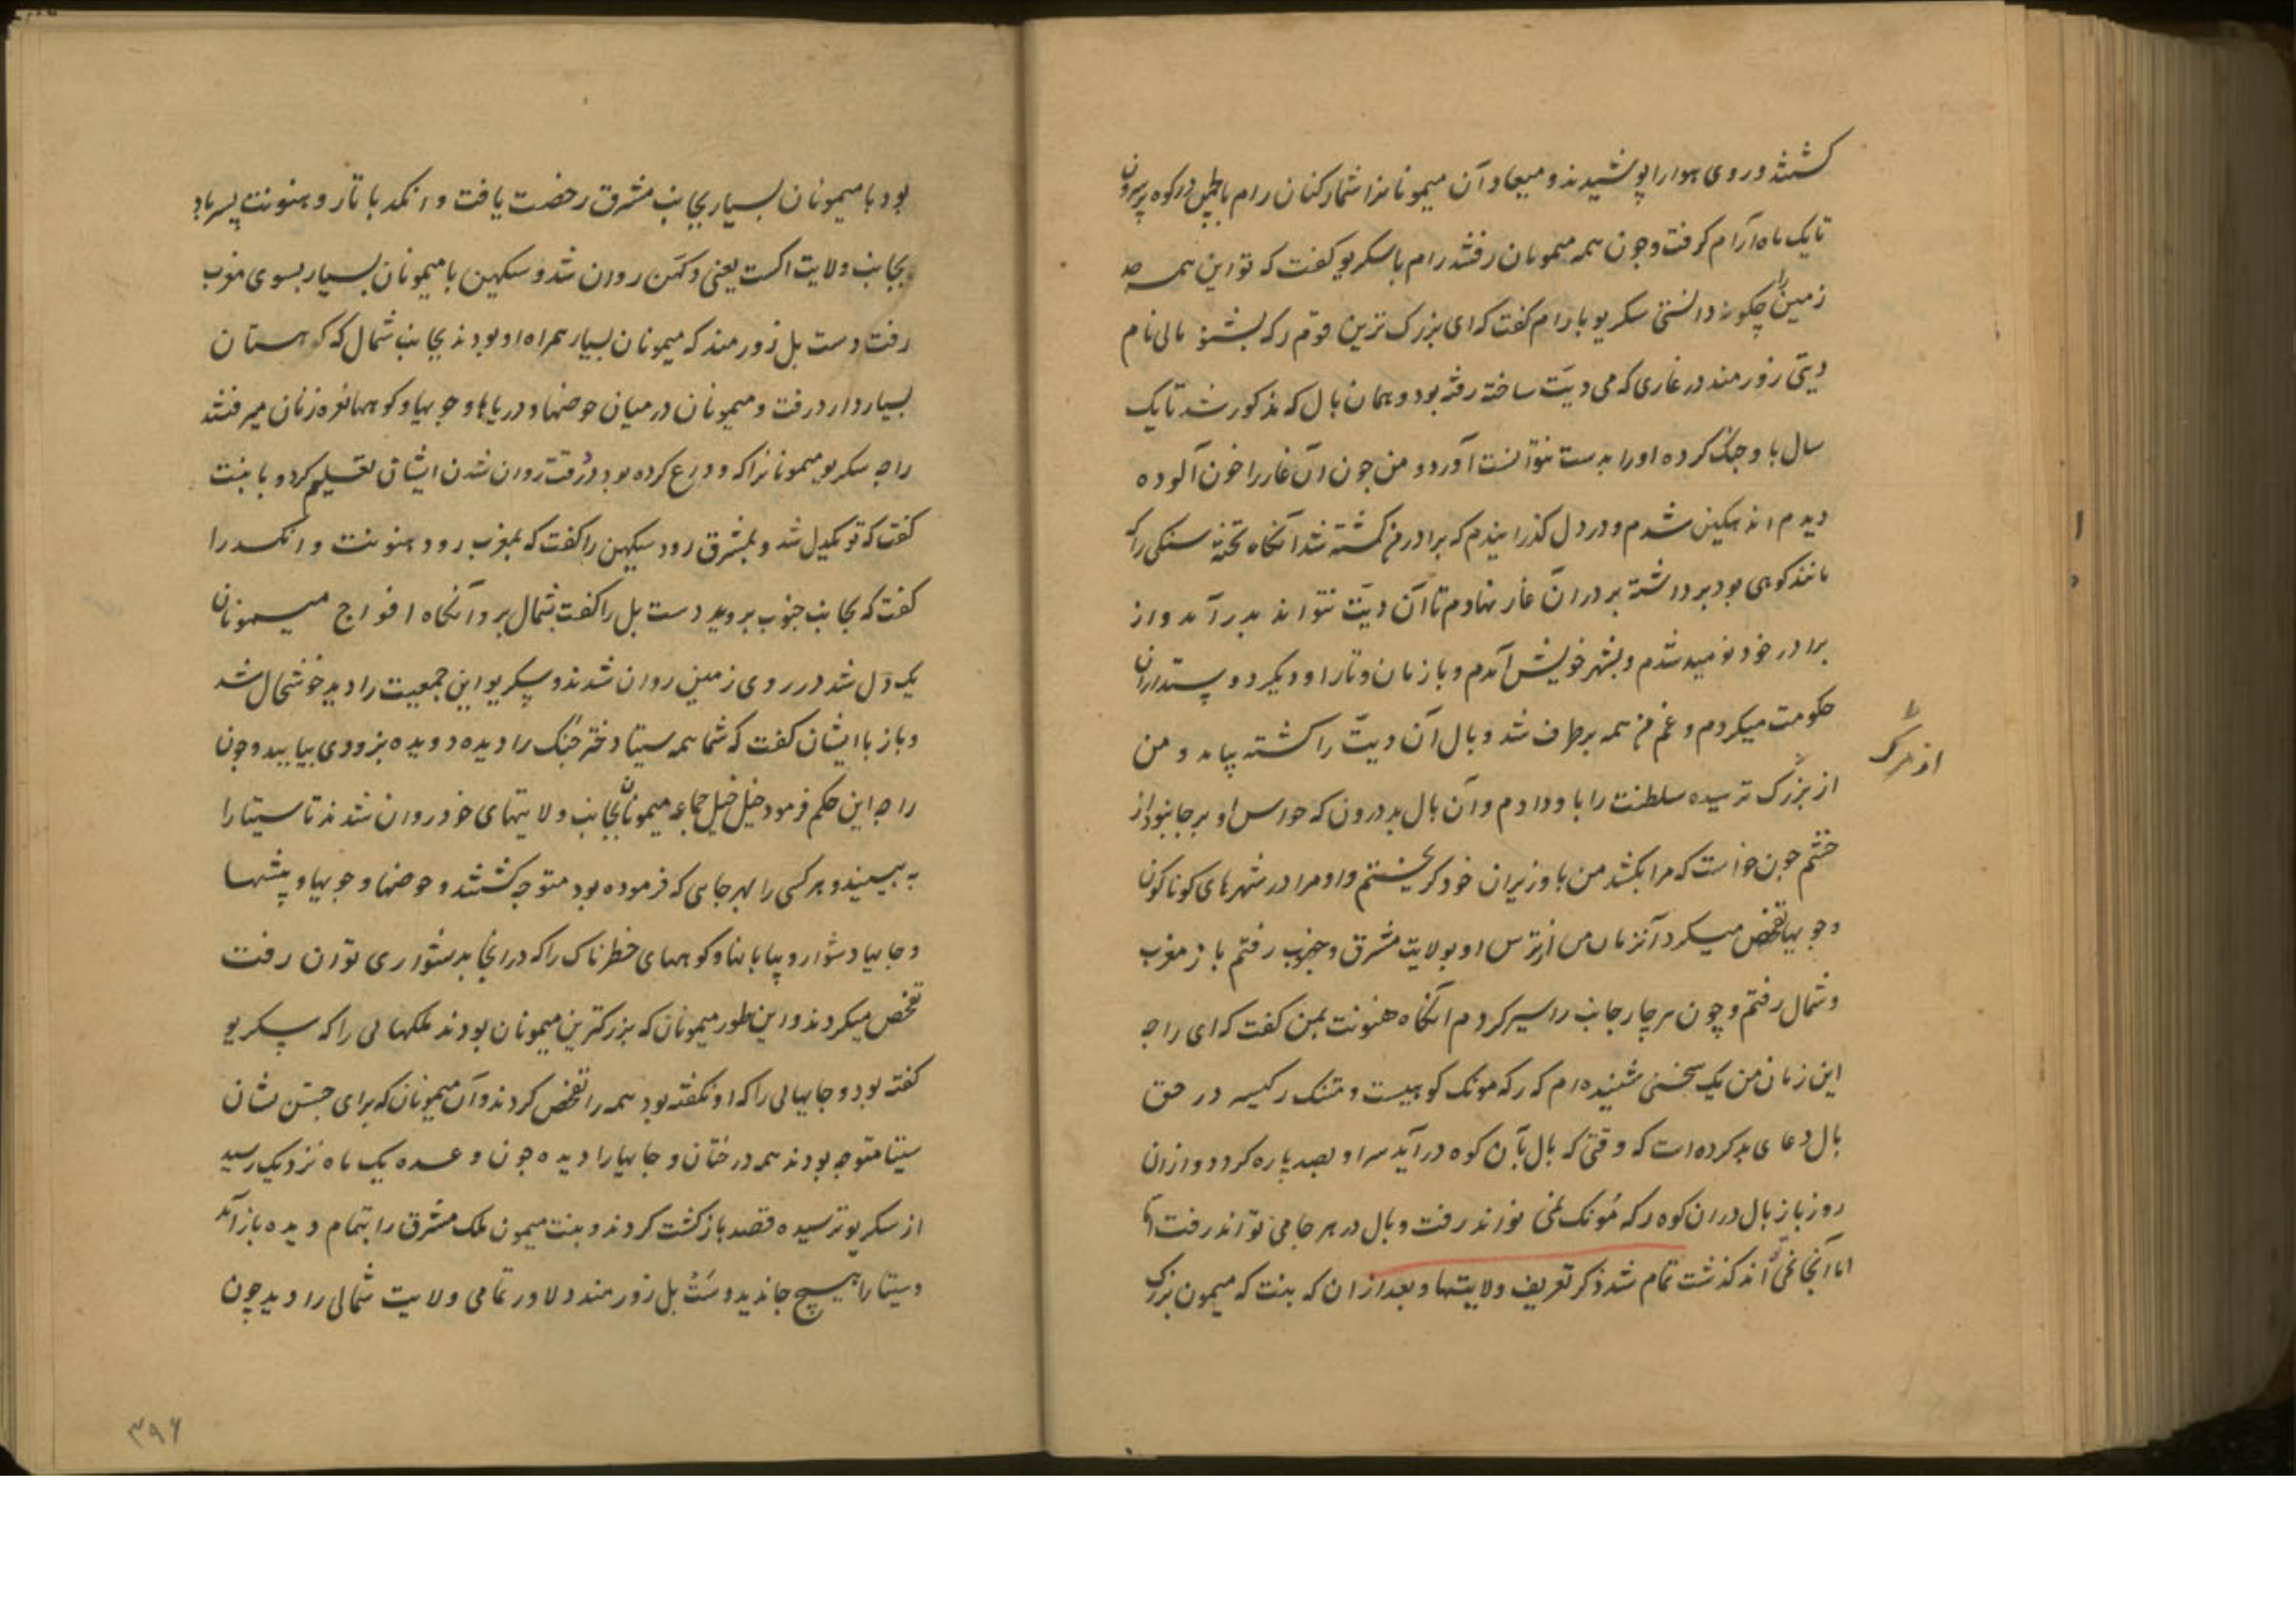 گشتند و روی هوا را پوشیدند و میعاد آن میمونانرا شمار کنان رام با لچمن در کوه پرسرون
تا یک ماه آرام گرفت و چون همه میمونان رفتند رام با سکریو کفت که تو این همه
زمین را چکونه دانستی سکریو با رام کفت که ای بزرک ترین قوم رکه بشنو بالی نام
دیتی زورمند در غاری که می دیت ساخته رفته بود و همان بال که مذکور شد تا یک
سال با و جنک کرده او را بدست نتوانست آورد و من چون آن غار را خون آلوده
دیدم اندهکین شدم و در دل کذرانیدم که برادرم کشته شد آنکاه تخته سنکی را که
مانند کوهی بود برداشته بر در آن غار نهادم تا آن دیت نتواند بدر آمد و از
برادر خود نومید شدم و بشهر خویش آمدم و با زنان و تارا و دیکر دوستداران
حکومت میکردم و غم من همه برطرف شد و بال آن دیت را کشته بیامد و من
از بزرک ترسیده سلطنت را با و دادم و آن بال بد درون که حواس او بر جا نبود از
از مرک
خشم چون خواست که مرا بکشد من با وزیران خود کریختم و او مرا در شهرهای کوناکون
و جویها تفحص میکرد آنزمان من از ترس او بولایت مشرق و جنوب رفتم باز مغرب
و شمال رفتم و چون هر چار جانب را سیر کردم آنکاه هنونت بمن کفت که ای راجه
این زمان من یک سخنی شنیده ام که رکه مونک کوهیست و متنک رکیسه در حق
بال دعای بد کرده است که وقتی که بال بآن کوه در آید سر او بصد پاره کردد و از ان
روز باز بال در ان کوه رکه مونک نمی تواند رفت و بال در هر جا می تواند رفت
اما آنجا نمی تواند کذشت تمام شد ذکر تعریف ولایتها و بعد از ان که بنت که میمون بزرک
بود با میمونان بسیار بجانب مشرق رخصت یافت و انکد با تار و هنونت پسر باد
بجانب ولایت اکست یعنی دکهن روان شد و سکهین با میمونان بسیار بسوی مغرب
رفت و ست بل زورمند که میمونان بسیار همراه او بودند بجانب شمال که کوهستان
بسیار دارد رفت و میمونان در میان حوضها و دریاها و جویها و کوهها نعره زنان میرفتند
راجه سکریو میمونانرا که وداع کرده بود در وقت روان شدن ایشان تعلیم کرد و با بنت
کفت که تو یکدل شد و بمشرق رود سکهین را کفت که بمغرب رود هنونت و انکد را
کفت که بجانب جنوب بروید و ست بل را کفت بشمال برو آنکاه افواج میمونان
یک دل شد در روی زمین روان شدند و سکریو این جمعیت را دید خوشحال شد
و باز با ایشان کفت که شما همه سیتا دختر جنک را دیده دویده بزودی بیایید و چون
راجه این حکم فرمود خیل خیل جماعه میمونان بجانب ولایتهای خود روان شدند تا سیتا را
به بینند و هر کسی را بهر جایی که فرموده بود متوجه کشتند و حوضها و جویها و بیشها
و جایها دشوار و بیابانها و کوههای خطرناک را که در انجا بدشواری توان رفت
تفحص میکردند و این طور میمونان که بزرکترین میمونان بودند ملکهایی را که سکریو
کفته بود و جایهایی را که او نکفته بود همه را تفحص کردند و آن میمونان که برای جستن نشان
سیتا متوجه بودند همه درختان و جایها را دیده چون وعده یک ماه نزدیک رسید
از سکریو ترسیده قصد بازکشت کردند و بنت میمون ملک مشرق را بتمام دیده باز آمد
و سیتا را هیچ جا ندید و ست بل زورمند دلاور تمامی ولایت شمالی را دید چون
۳۹۶